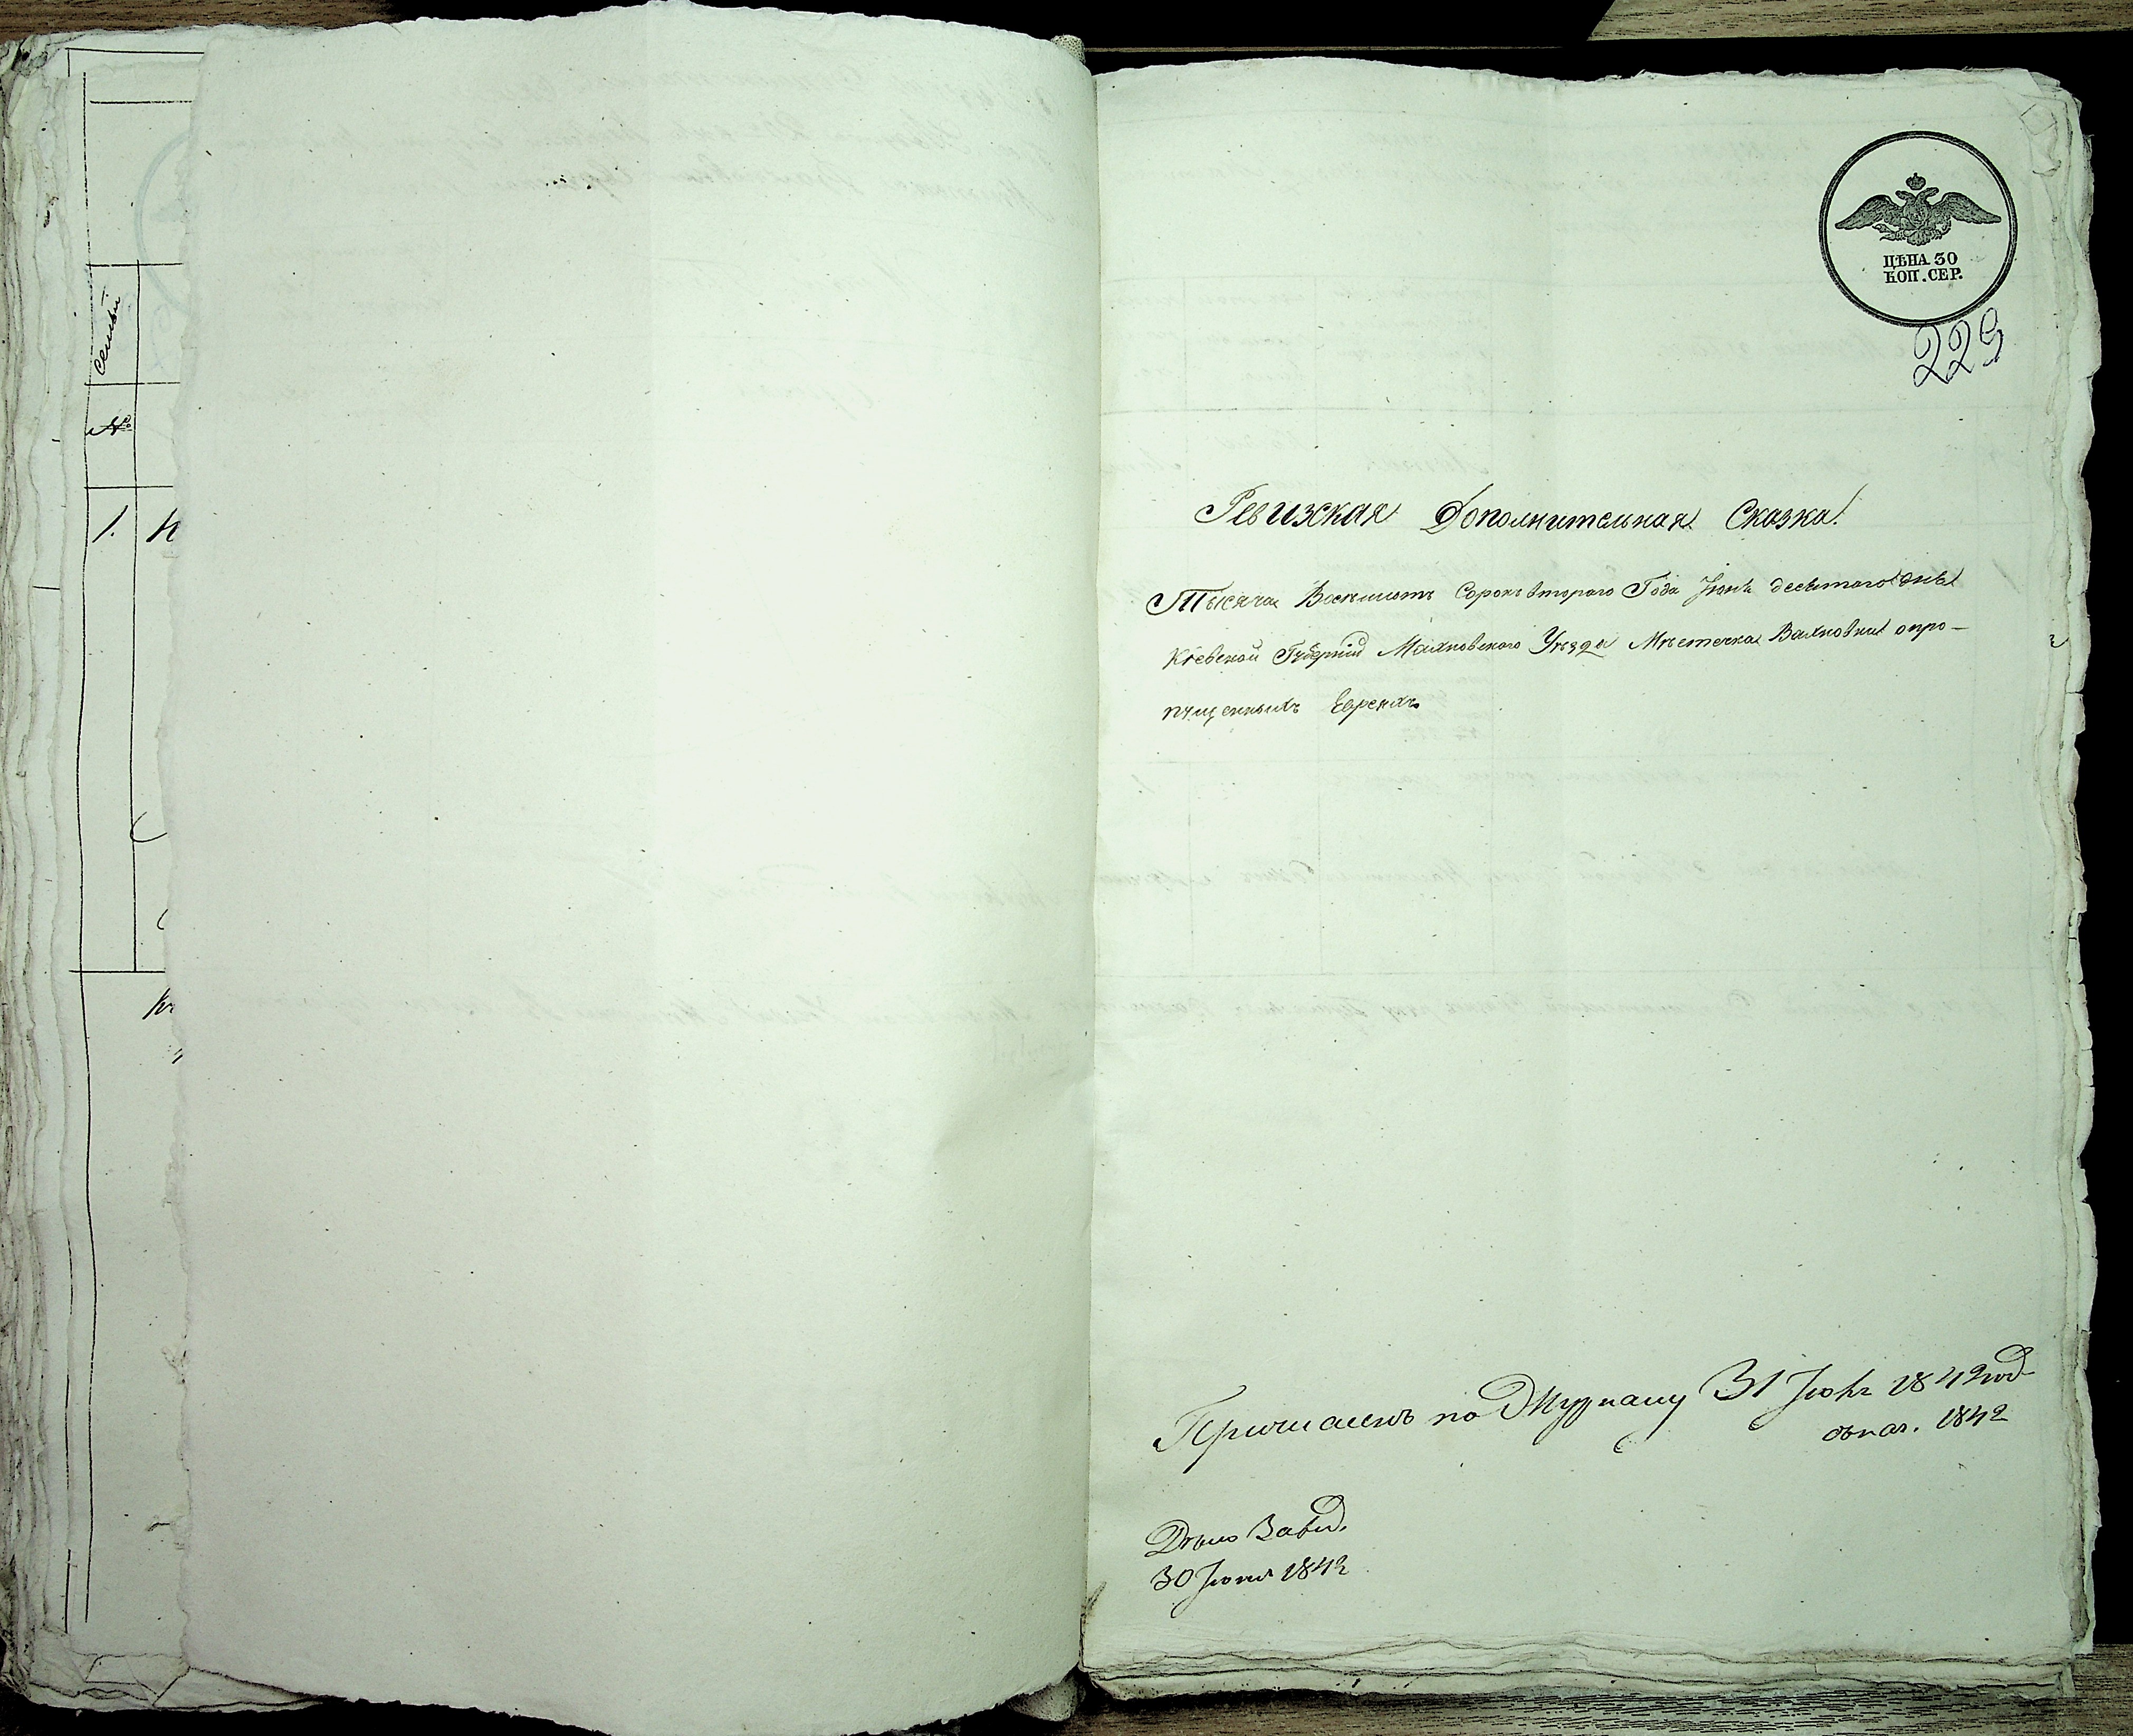 Семьи
№
1.
ЦѢНА 30
КОП. СЕР.
229
Ревизская Дополнительная Сказка.
Тысяча Восемьсотъ Сорокъ втораго Года Іюнь десятаго дня
Кіевской Губерніи Махновскаго Уѣзда Мѣстечка Вахновки о про-
пущенныхъ Евреяхъ
по Журналу 31 1842 год
1842
30 Іюня 1842